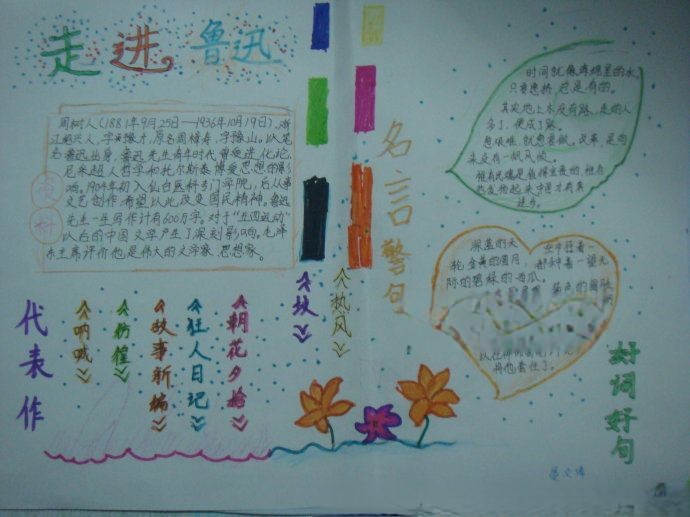 走进鲁迅
周树人(1881年9月25日—1936年10月19日),浙
江绍兴人,字豫才,原名周樟寿,字豫山。以笔
名鲁迅出身。鲁迅先生青年时代曾受进化论、
尼采超人哲学和托尔斯泰博爱思想的影
响。1904年初入仙台医科专门学院,后从事
文艺创作,希望以此改变国民精神。鲁迅
先生一生写作计有600万字。对于“五四运动”
以后的中国文学产生了深刻影响。毛泽
东主席评价他是伟大的文学家 思想家。
资料
代表作
《呐喊》
《彷徨》
《故事新编》
《狂人日记》
《朝花夕拾》
《坟》
《热风》
名言警句
时间就像海绵里的水,
只要愿挤,总是有的。
其实地上本没有路,走的人
多了,便成了路。
改革,是向
来没有一帆风顺
进步。
深蓝的天
轮金黄的圆月,
都种着一望无
际的碧绿的西瓜
好词好句